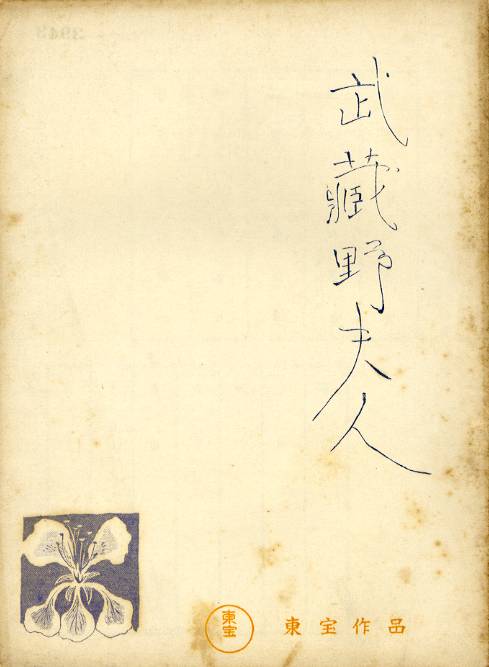 武蔵野夫人
東宝
東宝作品